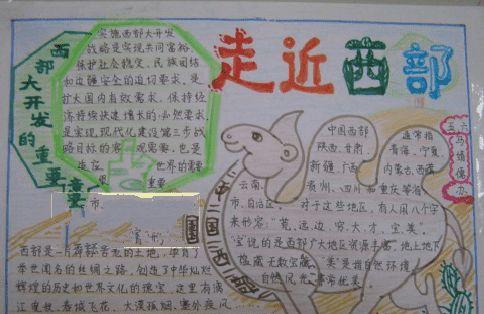 走近西部
西部大开发的重要
实施西部大开发
战略是实现共同富裕、
保护社会稳定、民族团结
和边疆安全的迫切要求,是
扩大国内有效需求,保持经
济持续快速增长的必然要求,
是实现现代化建设第三步战
略目标的客观需要,也是
世界的需要
重要
市.
五六
马娟偶办
中国西部 通常指
陕西、甘肃、青海、宁夏、
新疆、广西、内蒙古、西藏
云南、贵州、四川和重庆等省
市、自治区。对于这些地区,有人用八个字
来形容:"荒、远、边、穷、大、才、宝、美"。
"宝"说的是西部广大地区资源丰富,地上地下
蕴藏无数宝藏。"美"是指自然环境、
自然风光非常优美。
西部是一片神奇苍茫的土地,孕育了
举世闻名的丝绸之路,创造了中华灿烂
辉煌的历史和世界文化的瑰宝,这里有满
江鹿鼓、春城飞花、大漠孤烟、塞外疾风